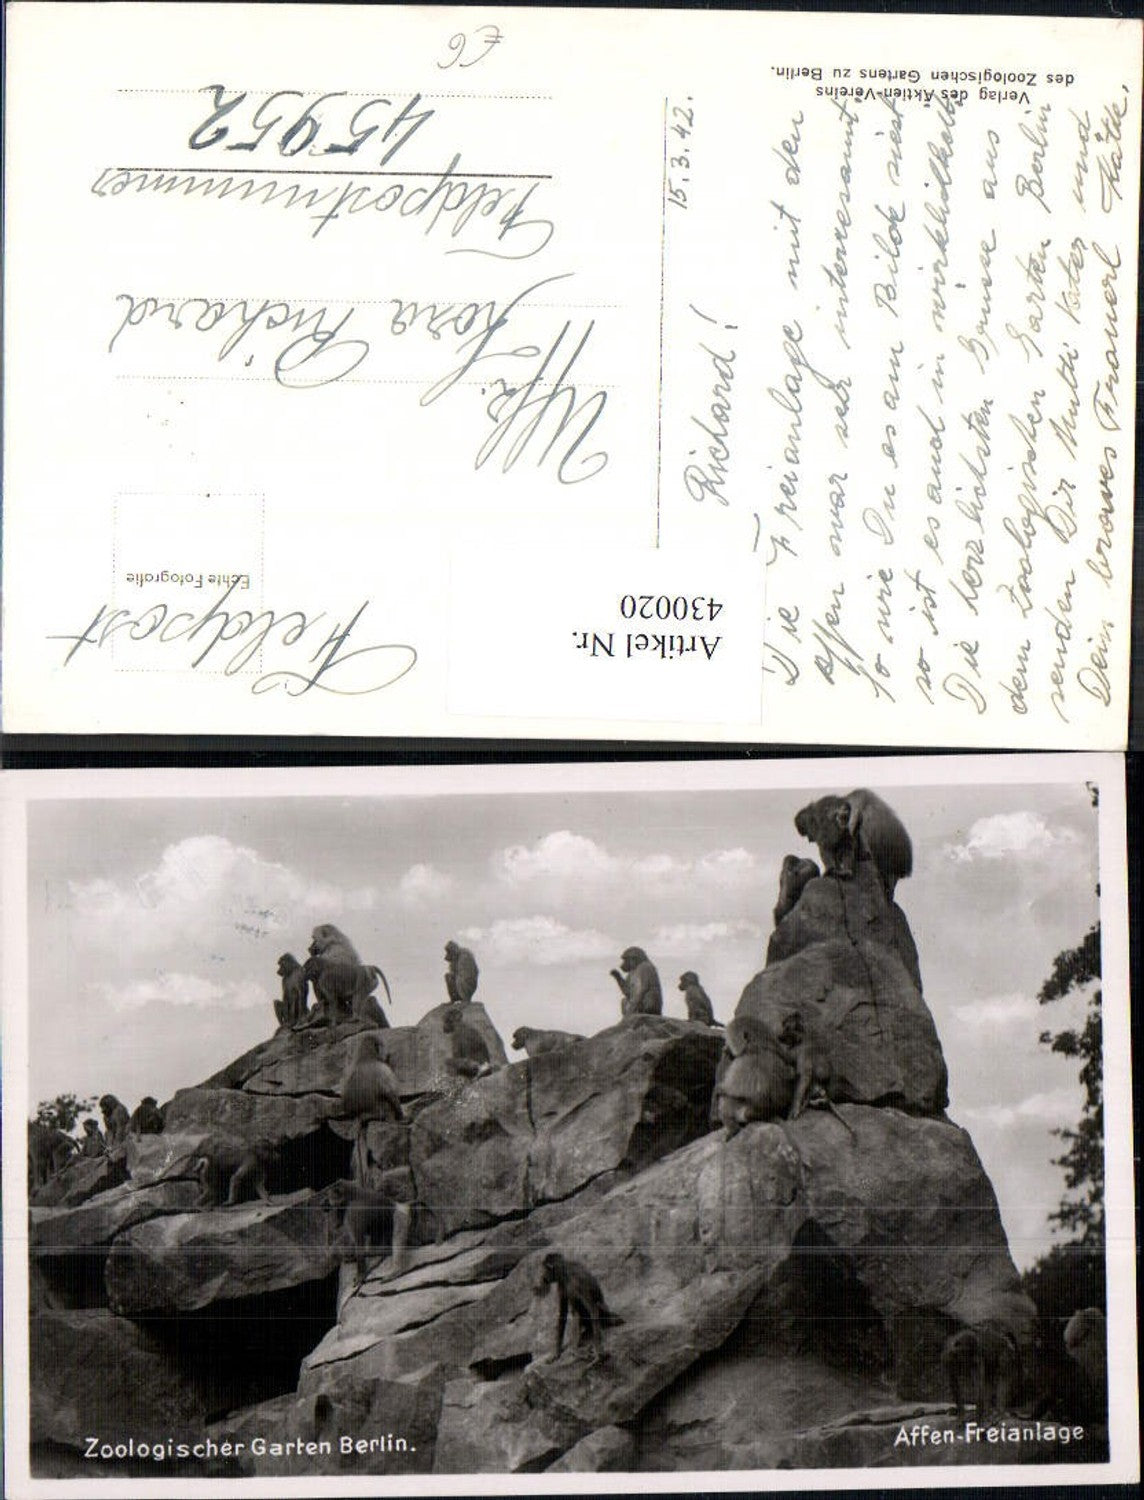 €6
Verlag des Aktien-Vereins
des Zoologischen Gartens zu Berlin.
Echte Fotografie
Feldpost
Uffz. Richard
Feldpostnummer
45952
Artikel Nr.
430020
15.3.42.
Richard!
Die Freianlage mit den
Affen war sehr interressant,
so wie Du es am Bilde siest
so ist es auch in
Die herzlichsten Grüsse aus
dem Zoologischen Garten Berlin
senden Dir Mutti Vater und
Dein braves Frauerl Käthe.
Zoologischer Garten Berlin.
Affen-Freianlage